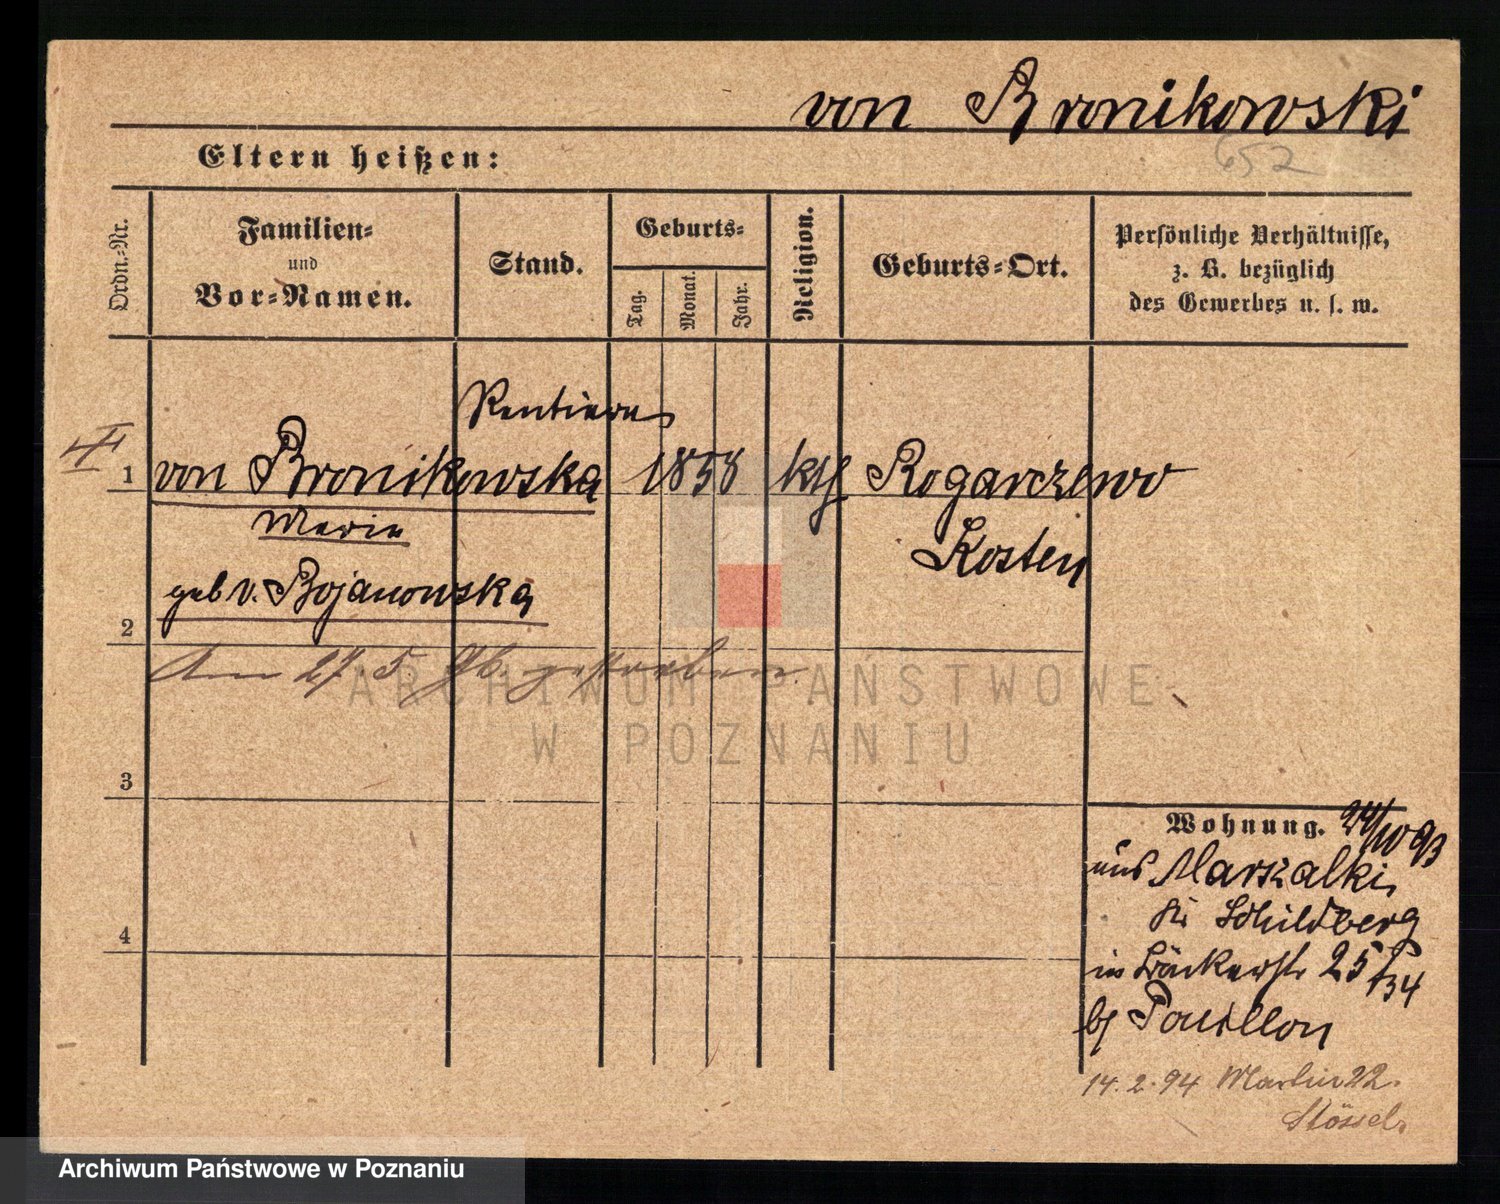 von Bronikowski
652
Eltern heißen:
Ordn.-Nr.
Familien-
und
Vor-Namen.
Stand.
Geburts-
Tag.
Monat.
Jahr.
Religion.
Geburts-Ort.
Persönliche Verhältnisse,
z. B. bezüglich
des Gewerbes u. s. w.
Rentiere
1 von Bronikowska 1858 kth Rogaczewo
Marie Kosten
geb v. Bojanowska
2
Am 27. 5. 96. gestorben.
ARCHIWUM PAŃSTWOWE
W POZNANIU
3
Wohnung. 24/10 93
aus Marszalki
Kr Schildberg
in Bäckerstr 25
4
bj Pauillon
14. 2. 94 Martin 22.
Stössel.
Archiwum Państwowe w Poznaniu